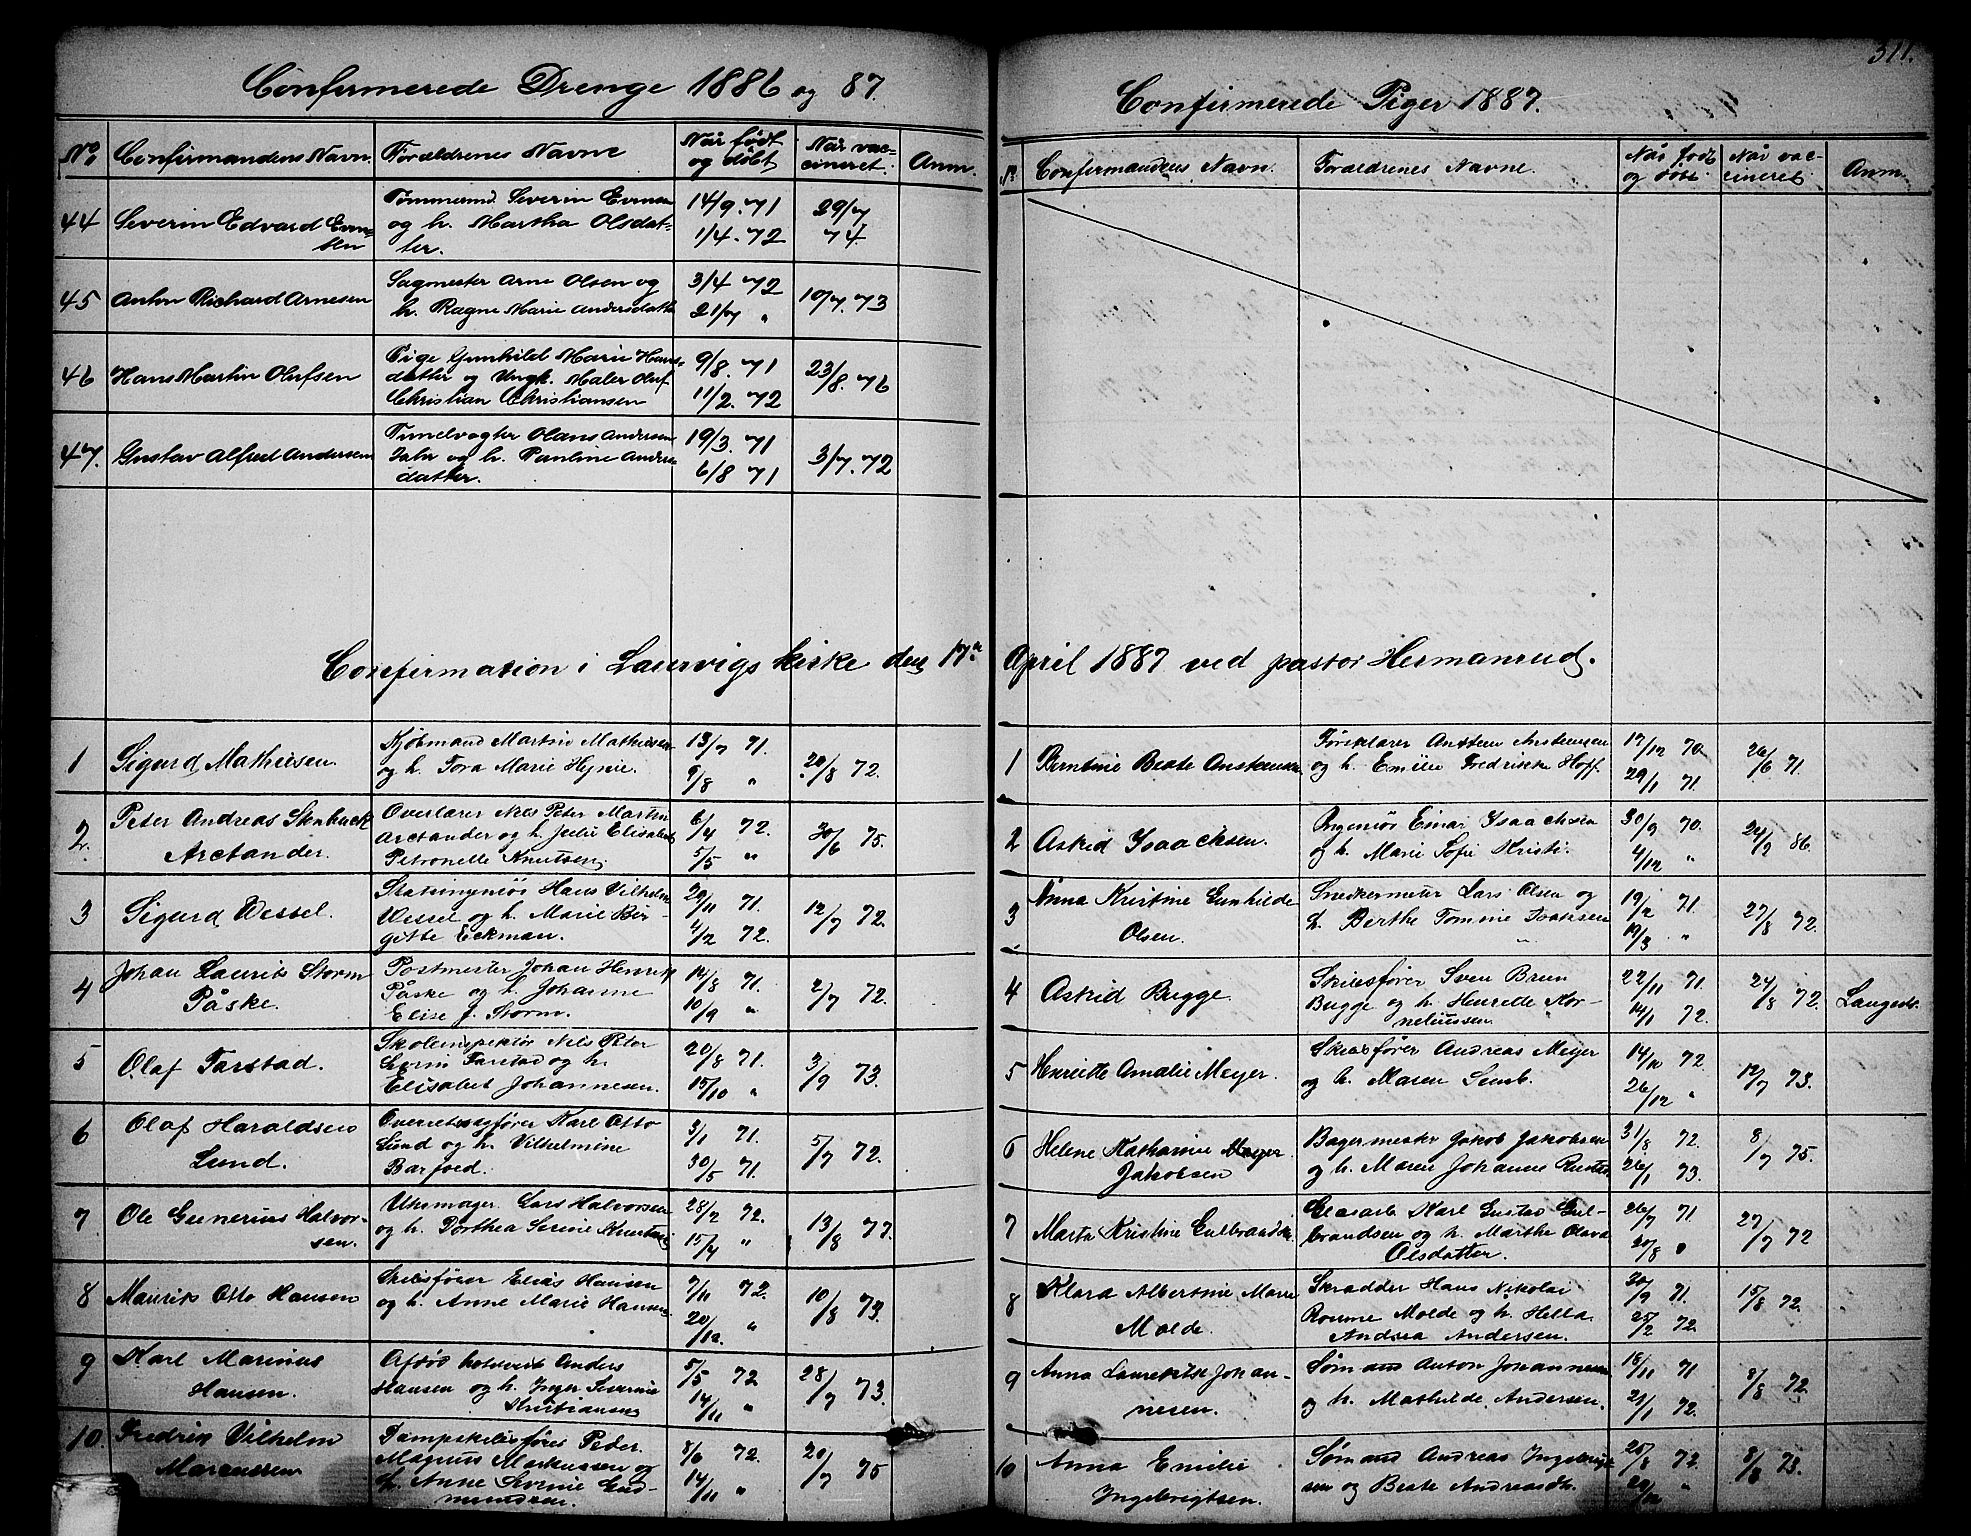 Confirmerede Drenge 1886 og 87.
No. Confirmandens Navn. Forældrenes Navne Når født og døbt Når vaccineret. Anm.
44 Severin Edvard Evensen
Tømmermd. Severin Evensen
og h. Martha Olsdat-
ter.
14/9. 71
1/4. 72
29/7
74
45 Anton Richard Arnesen
Sagmester Arne Olsen og
h. Ragne Marie Andersdatter
3/4 72
21/7 "
10/7. 73
46 Hans Martin Olufsen
Pige Gunhild Marie Hans-
datter og Ungk. Maler Oluf
Christian Christiansen
9/8. 71
11/2. 72
23/8. 76
47. Gustav Alfred Andersen
Tunelvogter Olaus Andersen
Jahr og h. Pauline Anders
datter.
19/3. 71
6/8 71
3/7. 72
Confirmation i Laurvigs kirke den 17de
1 Sigurd Mathiesen.
Kjøbmand Martin Mathiesen
og h. Tora Marie
13/7 71.
9/8 "
20/8 72.
2. Peter Andreas Stenbuck
Arctander.
Overlærer Nils Peter Martin
Arctander og h. Julie Elisabet
Petronelle Knutsen.
6/4 72.
5/5 "
30/6 75.
3 Sigurd Wessel.
Statsingeniør Hans Vilhelm
Wessel og h. Marie Bir-
gitte Eckman.
20/11 71.
4/2 72.
12/7 72.
4 Johan Laurits Storm
Påske.
Postmester Johan Henrik
Påske og h. Johanne
Elise f. Storm.
14/8 71.
10/9 "
2/7 72.
5 Olaf Farstad.
Skoleinspektør Nils Peter
Severin Farstad og h.
Elisabet Johannesen.
20/8 71.
15/10 "
3/9 73.
6 Olaf Haraldsen
Lund.
Overretssagfører Karl Otto
Lund og h. Vilhelmine
Barfoed.
3/1 71.
30/5 71.
5/7 72.
7 Ole Gunerius Halvor-
sen.
Uhrmager Lars Halvorsen
og h. Dorthea Serine Knutsen
28/2 72.
15/4 "
13/8 77.
8 Mauritz Otto Hansen
Skibsfører Elias Hansen
og h. Anne Marie Hansen
7/11 72.
20/12. "
10/8 73.
9 Karl Marinus
Hansen.
Afdøde Anders
Hansen og h. Inger Severine
Kristiansen
5/5 72
14/11 "
28/7 73.
10. Fredrik Vilhelm
Marcussen
Dampskibsfører Peder
Magnus Markussen og
h. Anne Severine Gud-
mundsen.
8/6 72.
14/11 "
20/7 75
311.
Confirmerede Piger 1887.
No. Confirmandens Navn. Forældrenes Navne. Når født og døbt Når vaccineret Anm.
April 1887 ved pastor Hermanrud.
1 Berntine Beate Anstensen
Anstensen
og h. Emilie Fredrikke Hoff.
17/12 70
29/1 71.
26/6 71.
2 Astrid Isaachsen.
Ingeniør Einar Isaachsen
og h. Marie Sofie Kristi.
30/9 70.
4/12 "
24/2 86.
3 Anna Kristine Gunhilde
Olsen.
Snedkermester Lars Olsen og
h. Berthe Tomine Isaksen
19/2 71.
19/3 "
27/8 72.
4 Astrid Bugge.
Skibsfører Sven Brun
Bugge og h. Henrette Kor-
neliussen.
22/11 71.
14/1 72.
24/8 72.
5 Henriette Amalie Meyer.
Skibsfører Andreas Meyer
og h. Maren Semb.
14/10 72.
26/12 "
12/7 73.
6 Helene Katharine Meyer
Jakobsen
Bagermester Jakob Jakobsen
og h. Maren Johanne
31/8 72.
26/1 73.
8/7 75.
7 Marta Kristine Gulbrandsen.
Glasarb. Karl Gustav Gul-
brandsen og h. Marthe Olava
Olsdatter.
26/7 71.
20/8 "
27/7 72
8 Klara Albertine Marie
Molde.
Skrædder Hans Nikolai
Molde og h. Hella
Andrea Andersen.
30/9 71.
25/2 72.
15/8 72.
9 Anna Laurentse Johan-
nesen.
Sømand Anton Johannesen
og h. Mathilde Andersen.
18/11 71
21/1 72.
8/8 72.
10 Anna Emilie
Ingebrigtsen.
Sømand Andreas Ingebrigt-
sen og Beate Andreasdtr.
25/8 72.
"
8/8 73.